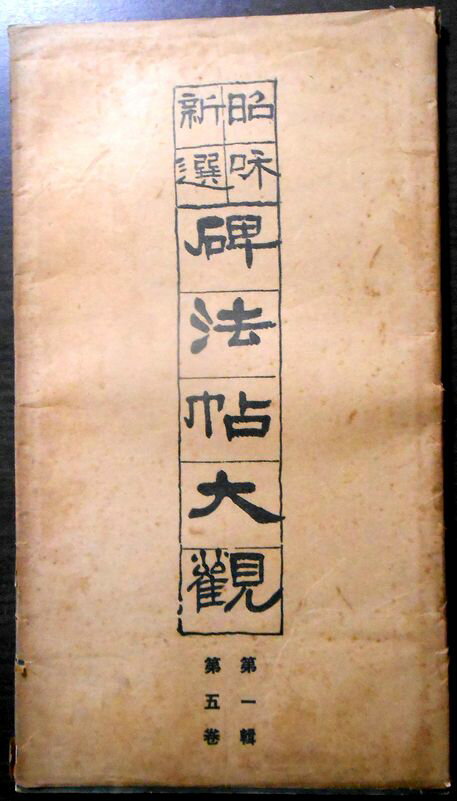 昭咊
新選
碑法帖大觀
第一輯
第五卷